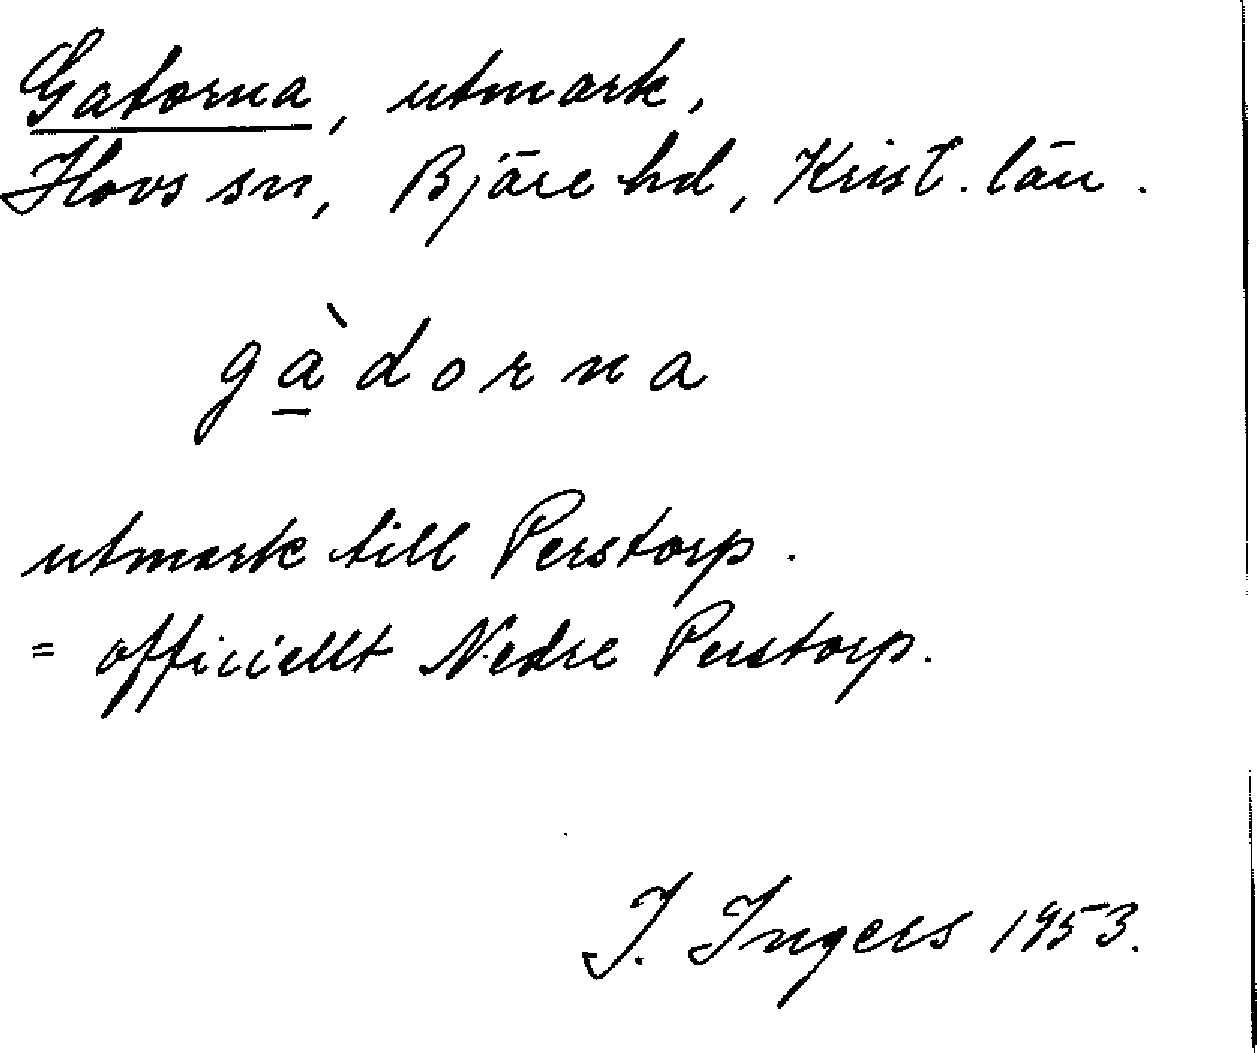 Gatorna, utmark,
Hovs sn, Bjäre hd, Krist. län.
gà̱dorna
utmark till Perstorp.
= officiellt Nedre Perstorp.
I. Ingers 1953.